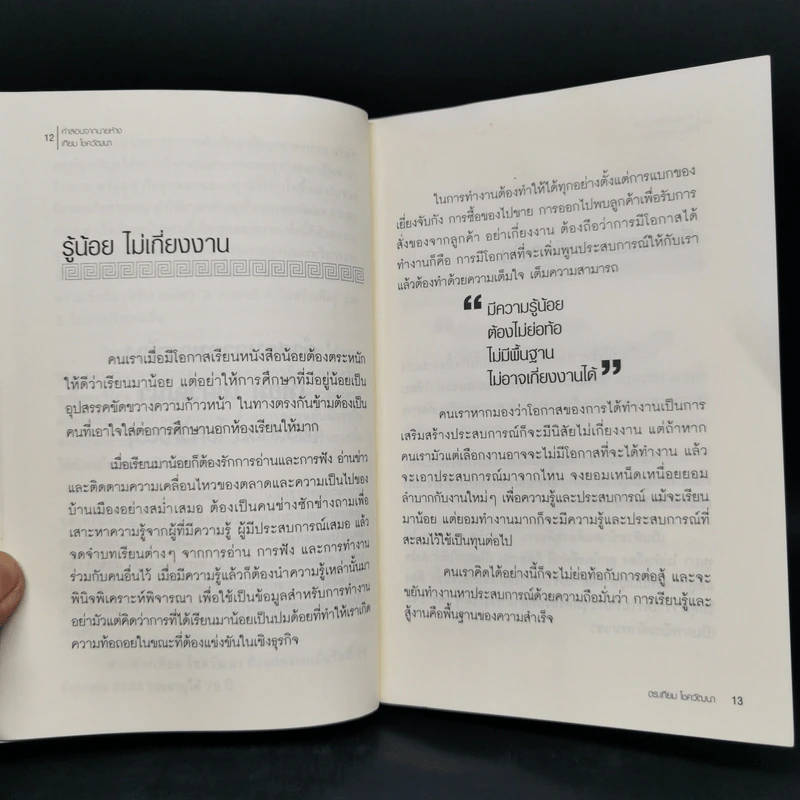 12
คำสอนจากนายห้าง
เทียม โชควัฒนา
รู้น้อย ไม่เกี่ยงงาน
คนเราเมื่อมีโอกาสเรียนหนังสือน้อยต้องตระหนัก
ให้ดีว่าเรียนมาน้อย แต่อย่าให้การศึกษาที่มีอยู่น้อยเป็น
อุปสรรคขัดขวางความก้าวหน้า ในทางตรงกันข้ามต้องเป็น
คนที่เอาใจใส่ต่อการศึกษานอกห้องเรียนให้มาก
เมื่อเรียนมาน้อยก็ต้องรักการอ่านและการฟัง อ่านข่าว
และติดตามความเคลื่อนไหวของตลาดและความเป็นไปของ
บ้านเมืองอย่างสม่ำเสมอ ต้องเป็นคนช่างซักช่างถามเพื่อ
เสาะหาความรู้จากผู้ที่มีความรู้ ผู้มีประสบการณ์เสมอ แล้ว
จดจำบทเรียนต่างๆ จากการอ่าน การฟัง และการทำงาน
ร่วมกับคนอื่นไว้ เมื่อมีความรู้แล้วก็ต้องนำความรู้เหล่านั้นมา
พินิจพิเคราะห์พิจารณา เพื่อใช้เป็นข้อมูลสำหรับการทำงาน
อย่ามัวแต่คิดว่าการที่ได้เรียนมาน้อยเป็นปมด้อยที่ทำให้เราเกิด
ความท้อถอยในขณะที่ต้องแข่งขันในเชิงธุรกิจ
ในการทำงานต้องทำให้ได้ทุกอย่างตั้งแต่การแบกของ
เยี่ยงจับกัง การซื้อของไปขาย การออกไปพบลูกค้าเพื่อรับการ
สั่งของจากลูกค้า อย่าเกี่ยงงาน ต้องถือว่าการมีโอกาสได้
ทำงานก็คือ การมีโอกาสที่จะเพิ่มพูนประสบการณ์ให้กับเรา
แล้วต้องทำด้วยความเต็มใจ เต็มความสามารถ
“ มีความรู้น้อย
ต้องไม่ย่อท้อ
ไม่มีพื้นฐาน
ไม่อาจเกี่ยงงานได้ ”
คนเราหากมองว่าโอกาสของการได้ทำงานเป็นการ
เสริมสร้างประสบการณ์ก็จะมีนิสัยไม่เกี่ยงงาน แต่ถ้าหาก
คนเรามัวแต่เลือกงานอาจจะไม่มีโอกาสที่จะได้ทำงาน แล้ว
จะเอาประสบการณ์มาจากไหน จงยอมเหน็ดเหนื่อยยอม
ลำบากกับงานใหม่ๆ เพื่อความรู้และประสบการณ์ แม้จะเรียน
มาน้อย แต่ยอมทำงานมากก็จะมีความรู้และประสบการณ์ที่
สะสมไว้ใช้เป็นทุนต่อไป
คนเราคิดได้อย่างนี้ก็จะไม่ย่อท้อกับการต่อสู้ และจะ
ขยันทำงานหาประสบการณ์ด้วยความถือมั่นว่า การเรียนรู้และ
สู้งานคือพื้นฐานของความสำเร็จ
ดร.เทียม โชควัฒนา 13